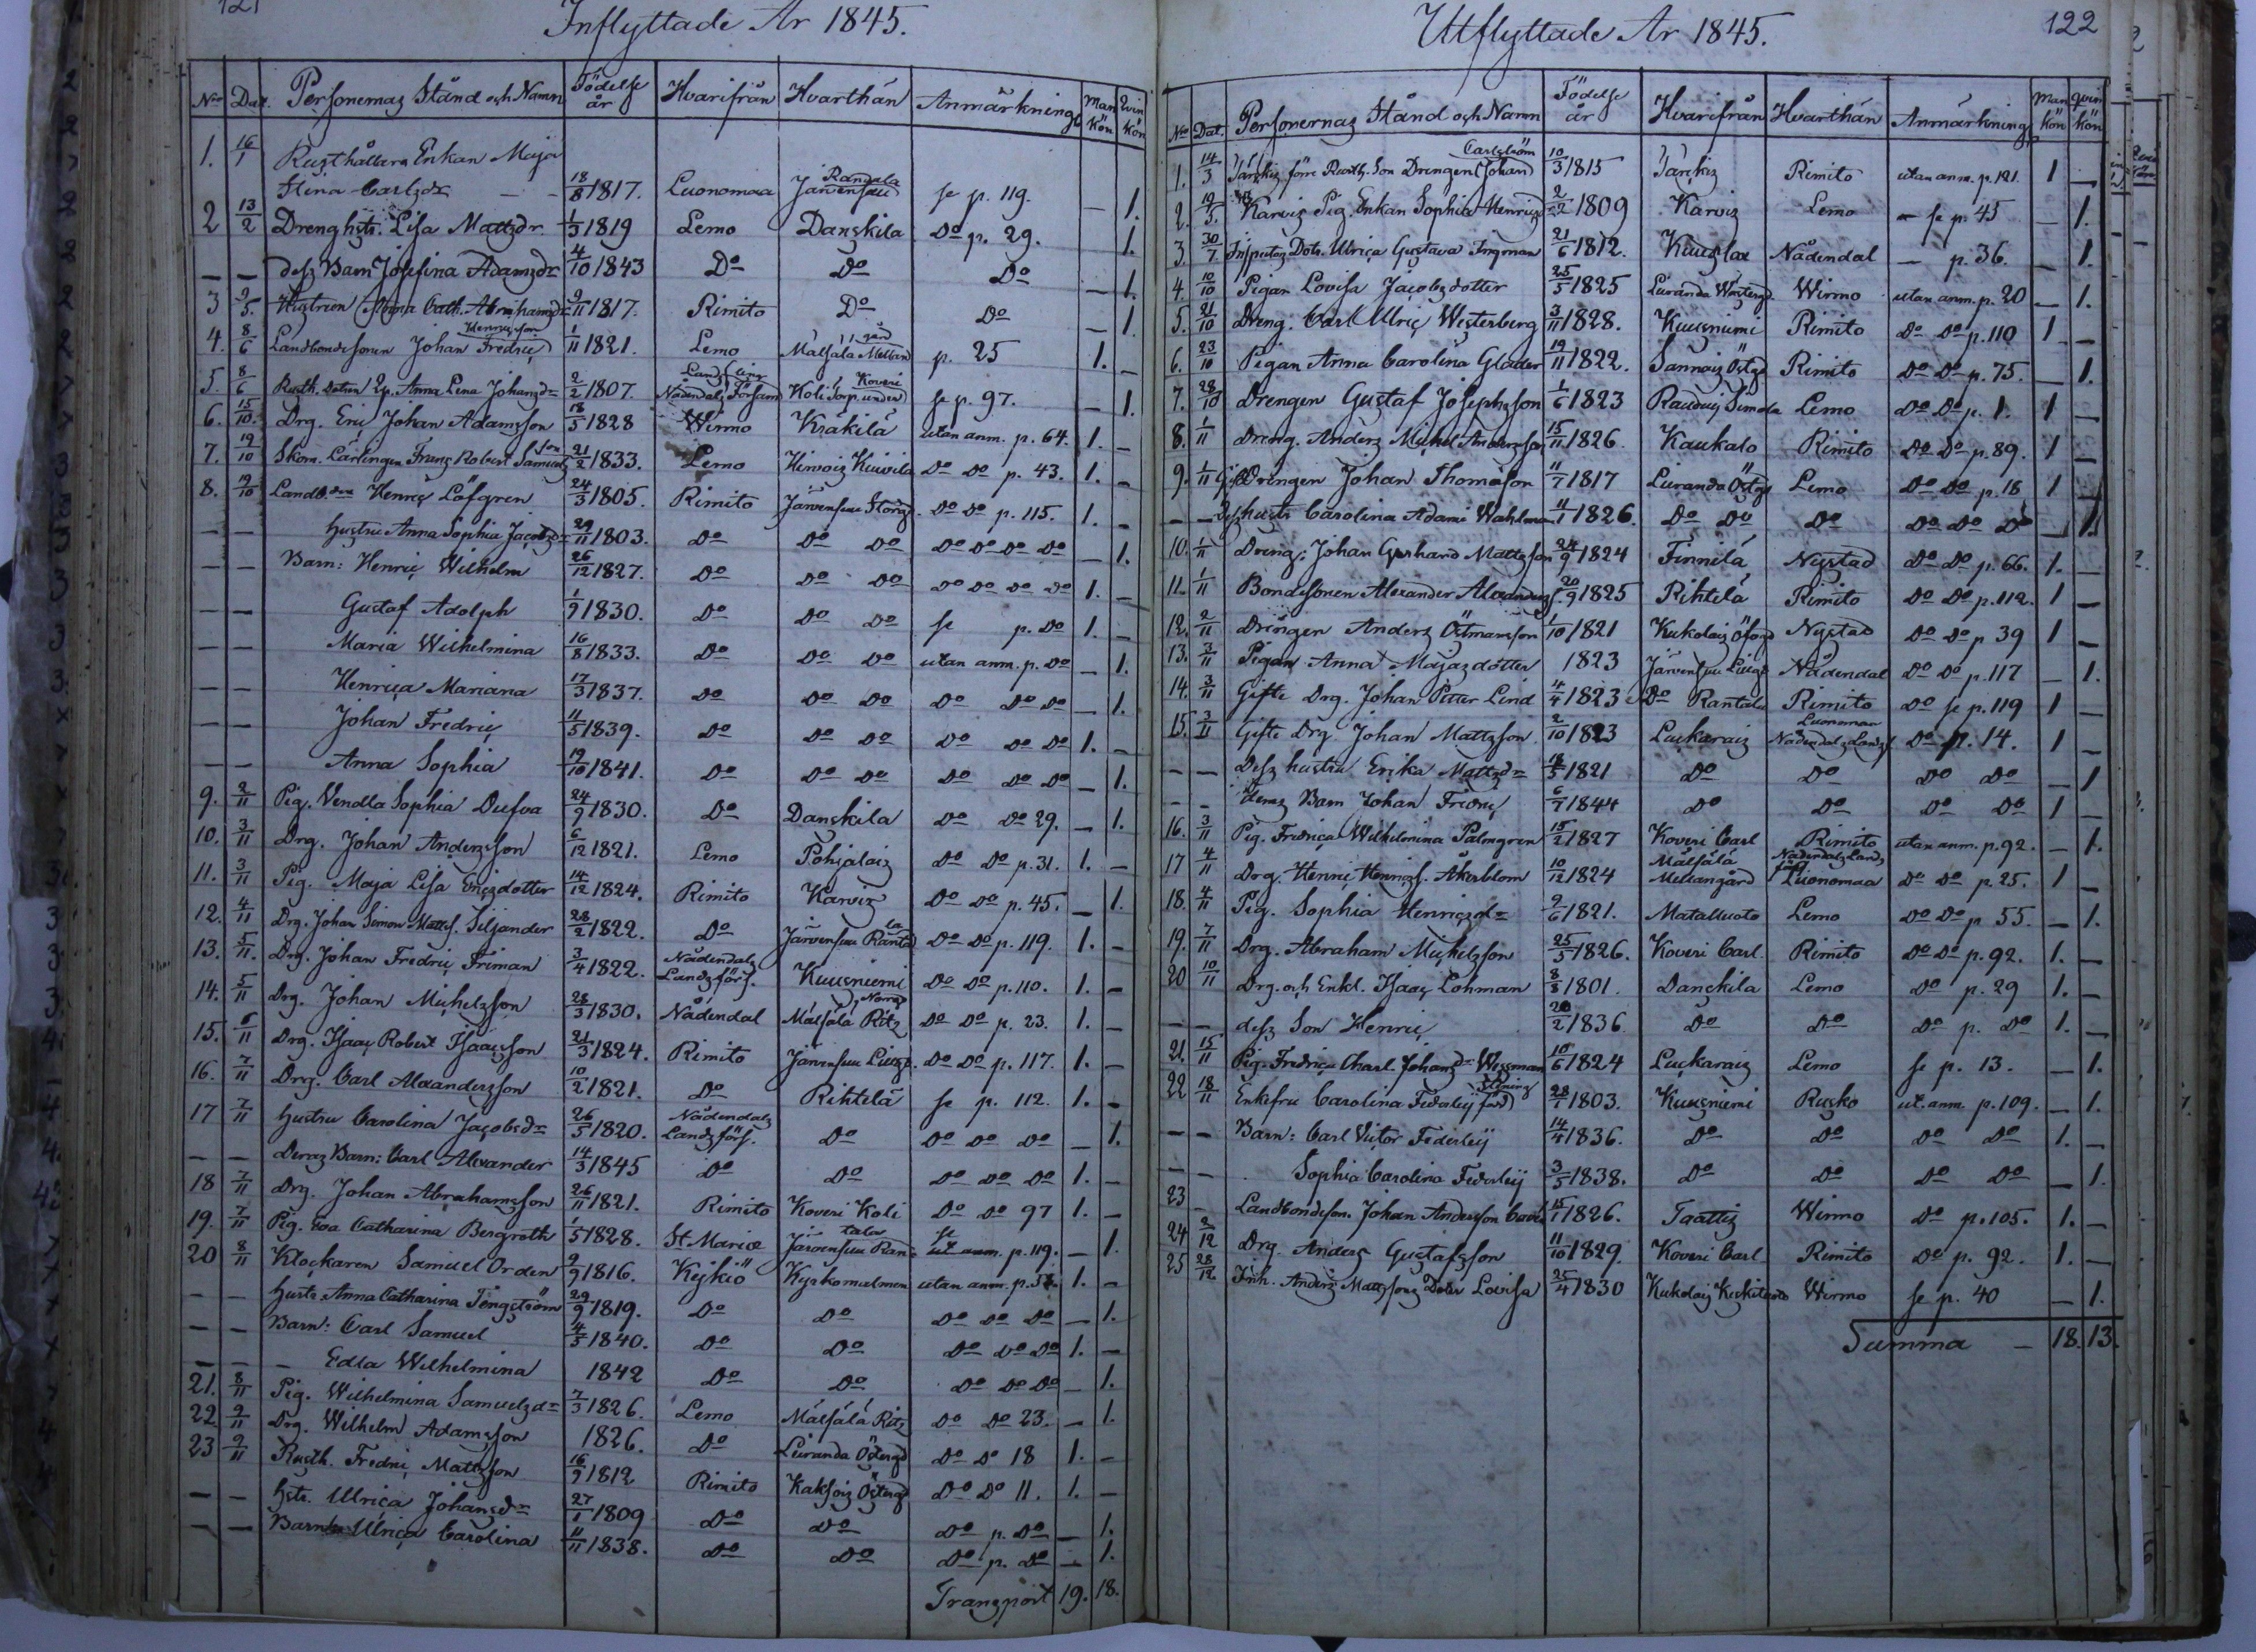 121
Inflyttade År 1845.
No Dat. Personernas Stånd och Namn Födelse år Hvarifrån Hvarthän Anmärkning Mankön Qvinkön
1. 16/1 Rusthållare Enkan Maja
Stina Carlsdr — 18/8 1817. Luonomaa Järvensuu Randala se p. 119. — 1.
2 13/2 Drenghstr. Lisa Mattsdr. 1/5 1819 Lemo Danskila Do p. 29. — 1.
— — dess Barn Josefina Adamsdr 4/10 1843 Do Do Do — 1.
3 9/5. Hustrun Anna Cath. Abrahamsdr 9/11 1817. Rimito Do Do — 1.
4. 8/6 Landbondesonen Johan Fredric Henricsson 1/11 1821. Lemo Mälsälä Mellangård p. 25 1. —
5. 8/6 Rusth. Dotren Anna Lena Johansdr 2/2 1807. Nådendals Lands Församl. Koli Torp under Koveri se p. 97. — 1.
6. 15/10. Drg. Eric Johan Adamsson 18/5 1828 Wirmo Kräkilä utan anm. p. 64. 1. —
7. 19/10 Skom. Lärlingen Frans Robert Samuelsson 21/2 1833. Lemo Hirvois Kuivila Do Do p. 43. 1. —
8. 19/10 Landb. Henric Löfgren 24/3 1805. Rimito Järvensuu Storg. Do Do p. 115. 1. —
— — hustru Anna Sophia Jacobsdr 29/11 1803. Do Do Do Do Do Do Do — 1.
— — Barn: Henric Wilhelm 26/12 1827. Do Do Do Do Do Do Do 1. —
— — Gustaf Adolph 1/9 1830. Do Do Do se p. Do 1. —
— — Maria Wilhelmina 16/8 1833. Do Do Do utan anm. p. Do — 1.
— — Henrica Mariana 17/3 1837. Do Do Do Do Do Do — 1.
— — Johan Fredric 11/5 1839. Do Do Do Do Do Do 1. —
— — Anna Sophia 19/10 1841. Do Do Do Do Do Do — 1.
9. 2/11 Pig. Vendla Sophia Dufva 24/9 1830. Do Danskila Do Do 29. — 1.
10. 3/11 Drg. Johan Andersson 6/12 1821. Lemo Pohjalais Do Do p. 31. 1. —
11. 3/11 Pig. Maja Lisa Ericsdotter 14/12 1824. Rimito Karvis Do Do p. 45. — 1.
12. 4/11 Drg. Johan Simon Mattss. Siljander 28/2 1822. Do Järvensuu Rantala Do Do p. 119. 1. —
13. 5/11. Drg. Johan Fredric Friman 3/4 1822. Nådendals Landsförs. Kuusniemi Do Do p. 110. 1. —
14. 5/11 Drg. Johan Michelsson 28/3 1830. Nådendal Mälsälä Ritz Norrg. Do Do p. 23. 1. —
15. 6/11 Drg. Isaac Robert Isaacsson 21/3 1824. Rimito Järvensuu Lillg. Do Do p. 117. 1. —
16. 7/11 Drg. Carl Alexandersson 10/2 1821. Do Rihtilä se p. 112. 1. —
17 7/11 hustru Carolina Jacobsdr 26/5 1820. Nådendals Landsförs. Do Do Do Do — 1.
— — Deras Barn: Carl Alexander 14/3 1845 Do Do Do Do Do 1. —
18 7/11 Drg. Johan Abrahamsson 26/11 1821. Rimito Koveri Koli Do Do 97 1. —
19. 7/11 Pig. Eva Catharina Bergroth 1/5 1828. St Mariæ Järvensuu Rantala se ut anm. p. 119. — 1.
20 8/11 Klockaren Samuel Orden 9/9 1816. Kejkiö Kyrkomalmen utan anm. p. 1. —
— — hustr Anna Catharina Tengström 29/9 1819. Do Do Do Do Do — 1.
— — Barn: Carl Samuel 4/5 1840. Do Do Do Do Do 1. —
— — — Edla Wilhelmina 1842 Do Do Do Do Do — 1.
21. 8/11 Pig. Wilhelmina Samuelsdr 7/3 1826. Lemo Mälsälä Ritz Do Do 23. — 1.
22 9/11 Drg. Wilhelm Adamsson 1826. Do Luranda Östergd Do Do 18 1. —
23 9/11 Rusth. Fredric Mattsson 16/9 1812 Rimito Kaksois Östergd Do Do 11. 1. —
— — hstr. Ulrica Johansdr 27/1 1809 Do Do Do p. Do — 1.
— — Barn Ulrica Carolina 11/11 1838. Do Do Do p. Do — 1.
Transport 19. 18.
122
Utflyttade År 1845.
No Dat. Personernas Stånd och Namn Födelse år Hvarifrån Hvarthän Anmärkning Mankön Qvinkön
1. 14/3 Järckis förre Rusth. Son Drengen Johan Carlström 10/3 1815 Järckis Rimito utan anm. p. 121. 1 —
2. 19/5. Karvis Pig. Enkan Sophia Henricsd 2/2 1809 Karvis Lemo — se p. 45 — 1.
3. 30/7 Inspectors Dotr. Ulrica Gustava Ingman 21/6 1812. Kuuslax Nådendal — p. 36. — 1.
4. 10/10 Pigan Lovisa Jacobsdotter 25/5 1825 Luranda Westergd Wirmo utan anm. p. 20 — 1.
5. 21/10 Dreng. Carl Ulric Westerberg 3/11 1828. Kuusniemi Rimito Do Do p. 110 1 —
6. 23/10 Pigan Anna Carolina Glader 19/11 1822. Sannais Östgd Rimito Do Do p. 75. — 1.
7. 28/10 Drengen Gustaf Josephsson 1/6 1823 Rauduis Simola Lemo Do Do p. 1. 1 —
8. 1/11 Dreng. Anders Michel Andersson 15/11 1826. Kaukalo Rimito Do Do p. 89. 1 —
9. 1/11 Gifte Drengen Johan Thomasson 11/7 1817 Luranda Östgd Lemo Do Do p. 18 1 —
— — Dess hustr Carolina Adami Wahlman 11/1 1826. Do Do Do Do Do Do — 1.
10. 1/11 Dreng. Johan Gerhard Mattsson 24/9 1824 Finnilä Nystad Do Do p. 66. 1. —
11. 1/11 Bondesonen Alexander Alexanderss. 20/9 1825 Rihtilä Rimito Do Do p. 112. 1 —
12. 2/11 Drengen Anders Östmansson 1/10 1821 Kukolais Öfvergd Nystad Do Do p 39 1 —
13. 3/11 Pigan Anna Majasdotter 1823 Järvensuu Lillgd Nådendal Do Do p. 117 — 1.
14. 3/11 Gifte Drg. Johan Petter Lind 4/4 1823 Do Rantala Rimito Do se p. 119 1 —
15. 3/11 Gifte Drg Johan Mattsson 2/10 1823 Luckarais Luonomaa Nådendals Landsf Do p. 14. 1 —
— — Dess hustru Erika Mattsdr 18/5 1821 Do Do Do Do — 1
— — deras Barn Johan Fredric 6/7 1844 Do Do Do Do 1 —
16. 3/11 Pig. Fredrica Wilhelmina Palmgren 15/2 1827 Koveri Carl Rimito utan anm. p. 92. — 1.
17 4/11 Drg. Henric Henricss. Åkerblom 10/12 1824 Mälsälä Mellangård Nådendals Lands förs Luonomaa Do Do p. 25. 1 —
18. 4/11 Pig. Sophia Henricsdr 9/6 1821. Mataluoto Lemo Do Do p. 55. — 1.
19. 7/11 Drg. Abraham Michelsson 25/5 1826. Koveri Carl. Rimito Do Do p. 92. 1. —
20 10/11 Drg. och Enkl. Isaac Lohman 8/8 1801. Danskila Lemo Do p. 29 1. —
— — dess Son Henric 20/2 1836. Do Do Do p. Do 1. —
21. 15/11 Pig. Fredrica Charl. Johansdr Wessman 10/6 1824 Luckarais Lemo se p. 13. — 1.
22 18/11 Enkefru Carolina Federleij född Flening 28/1 1803. Kuusniemi Rusko ut. anm. p. 109. — 1.
— — Barn: Carl Victor Federleij 14/4 1836. Do Do Do Do 1. —
— — Sophia Carolina Federleij 3/5 1838. Do Do Do Do — 1.
23 — Landbondeson. Johan Andersson 15/1 1826. Taattis Wirmo Do p. 105. 1. —
24 2/12 Drg. Anders Gustafsson 11/10 1829. Koveri Carl Rimito Do p. 92. 1. —
25 28/12. Inh. Anders Mattssons Doter Lovisa 25/4 1830 Kukolais Keskitalo Wirmo se p. 40 — 1.
Summa — 18. 13.